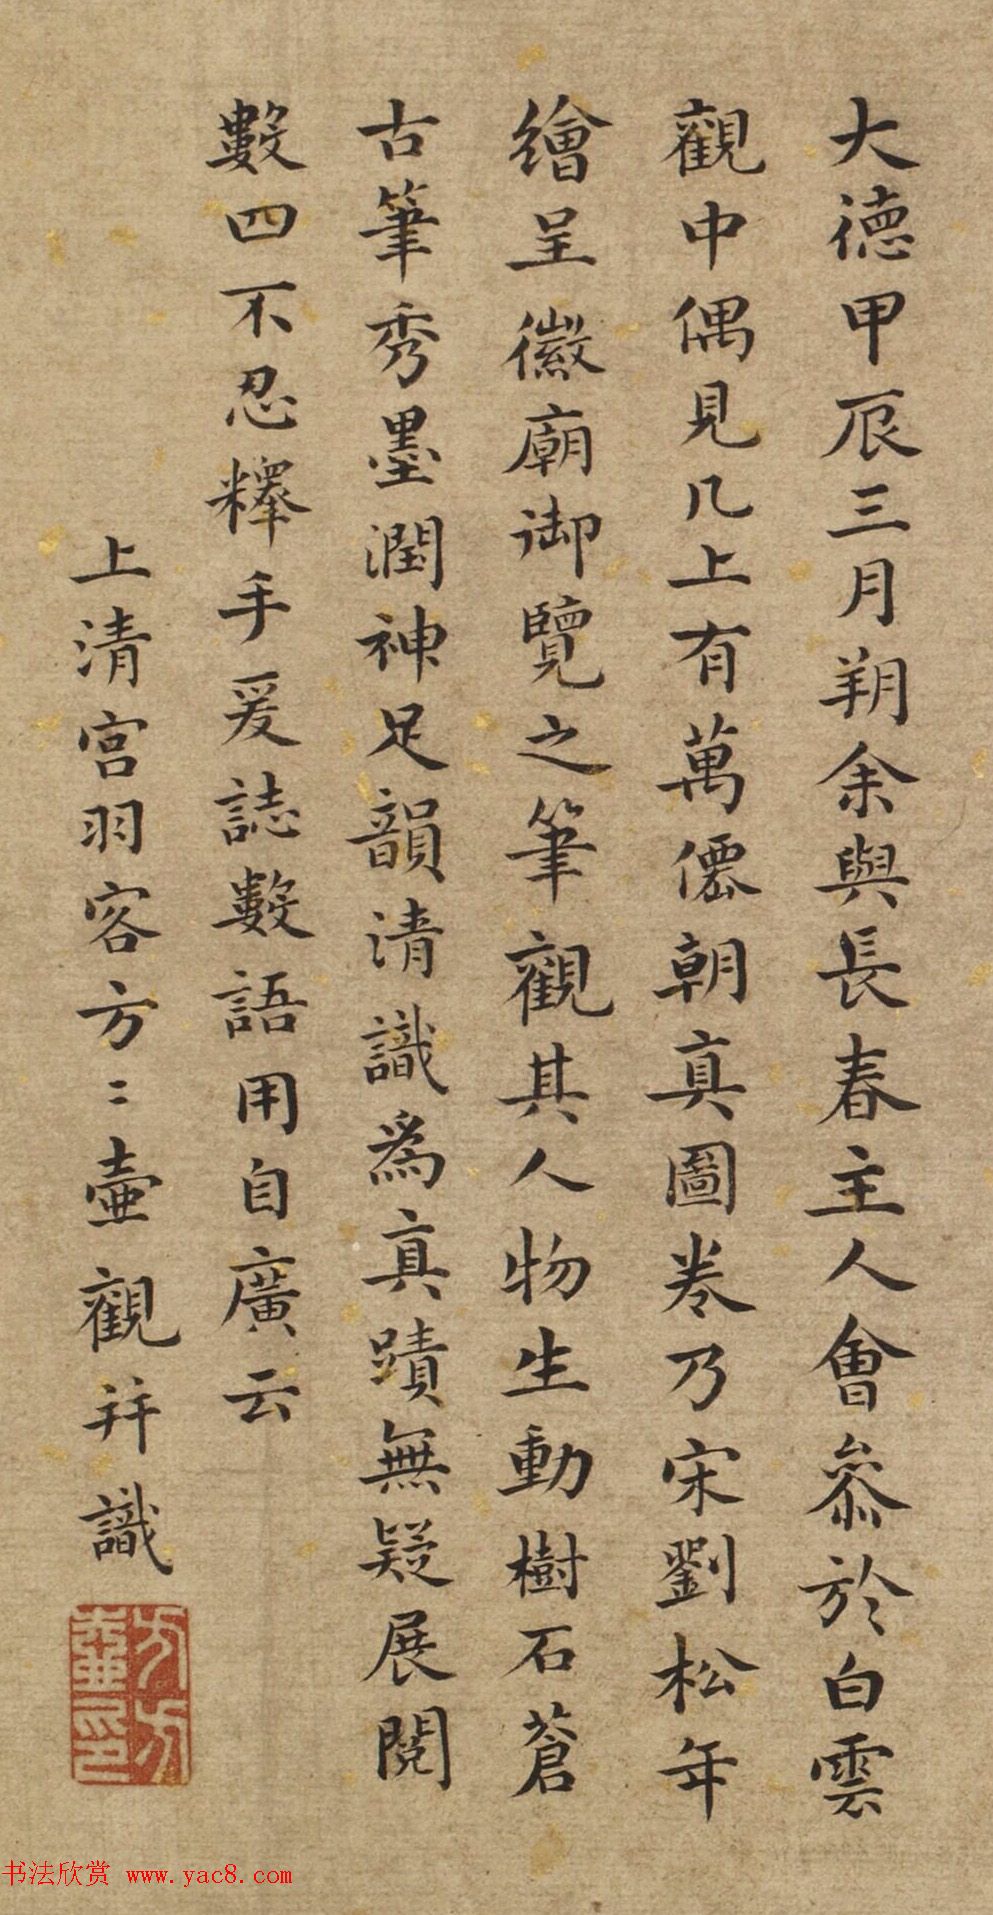 大德甲辰三月朔余與長春主人會叅於白雲
觀中偶見几上有萬僊朝真圖卷乃宋劉松年
繪呈徽廟御覽之筆觀其人物生動樹石蒼
古筆秀墨潤神足韻清識為真蹟無疑展閱
數四不忍釋手爰誌數語用自廣云
上清宮羽客方〻壷觀并識
方方壷印
书法欣赏 www.yac8.com